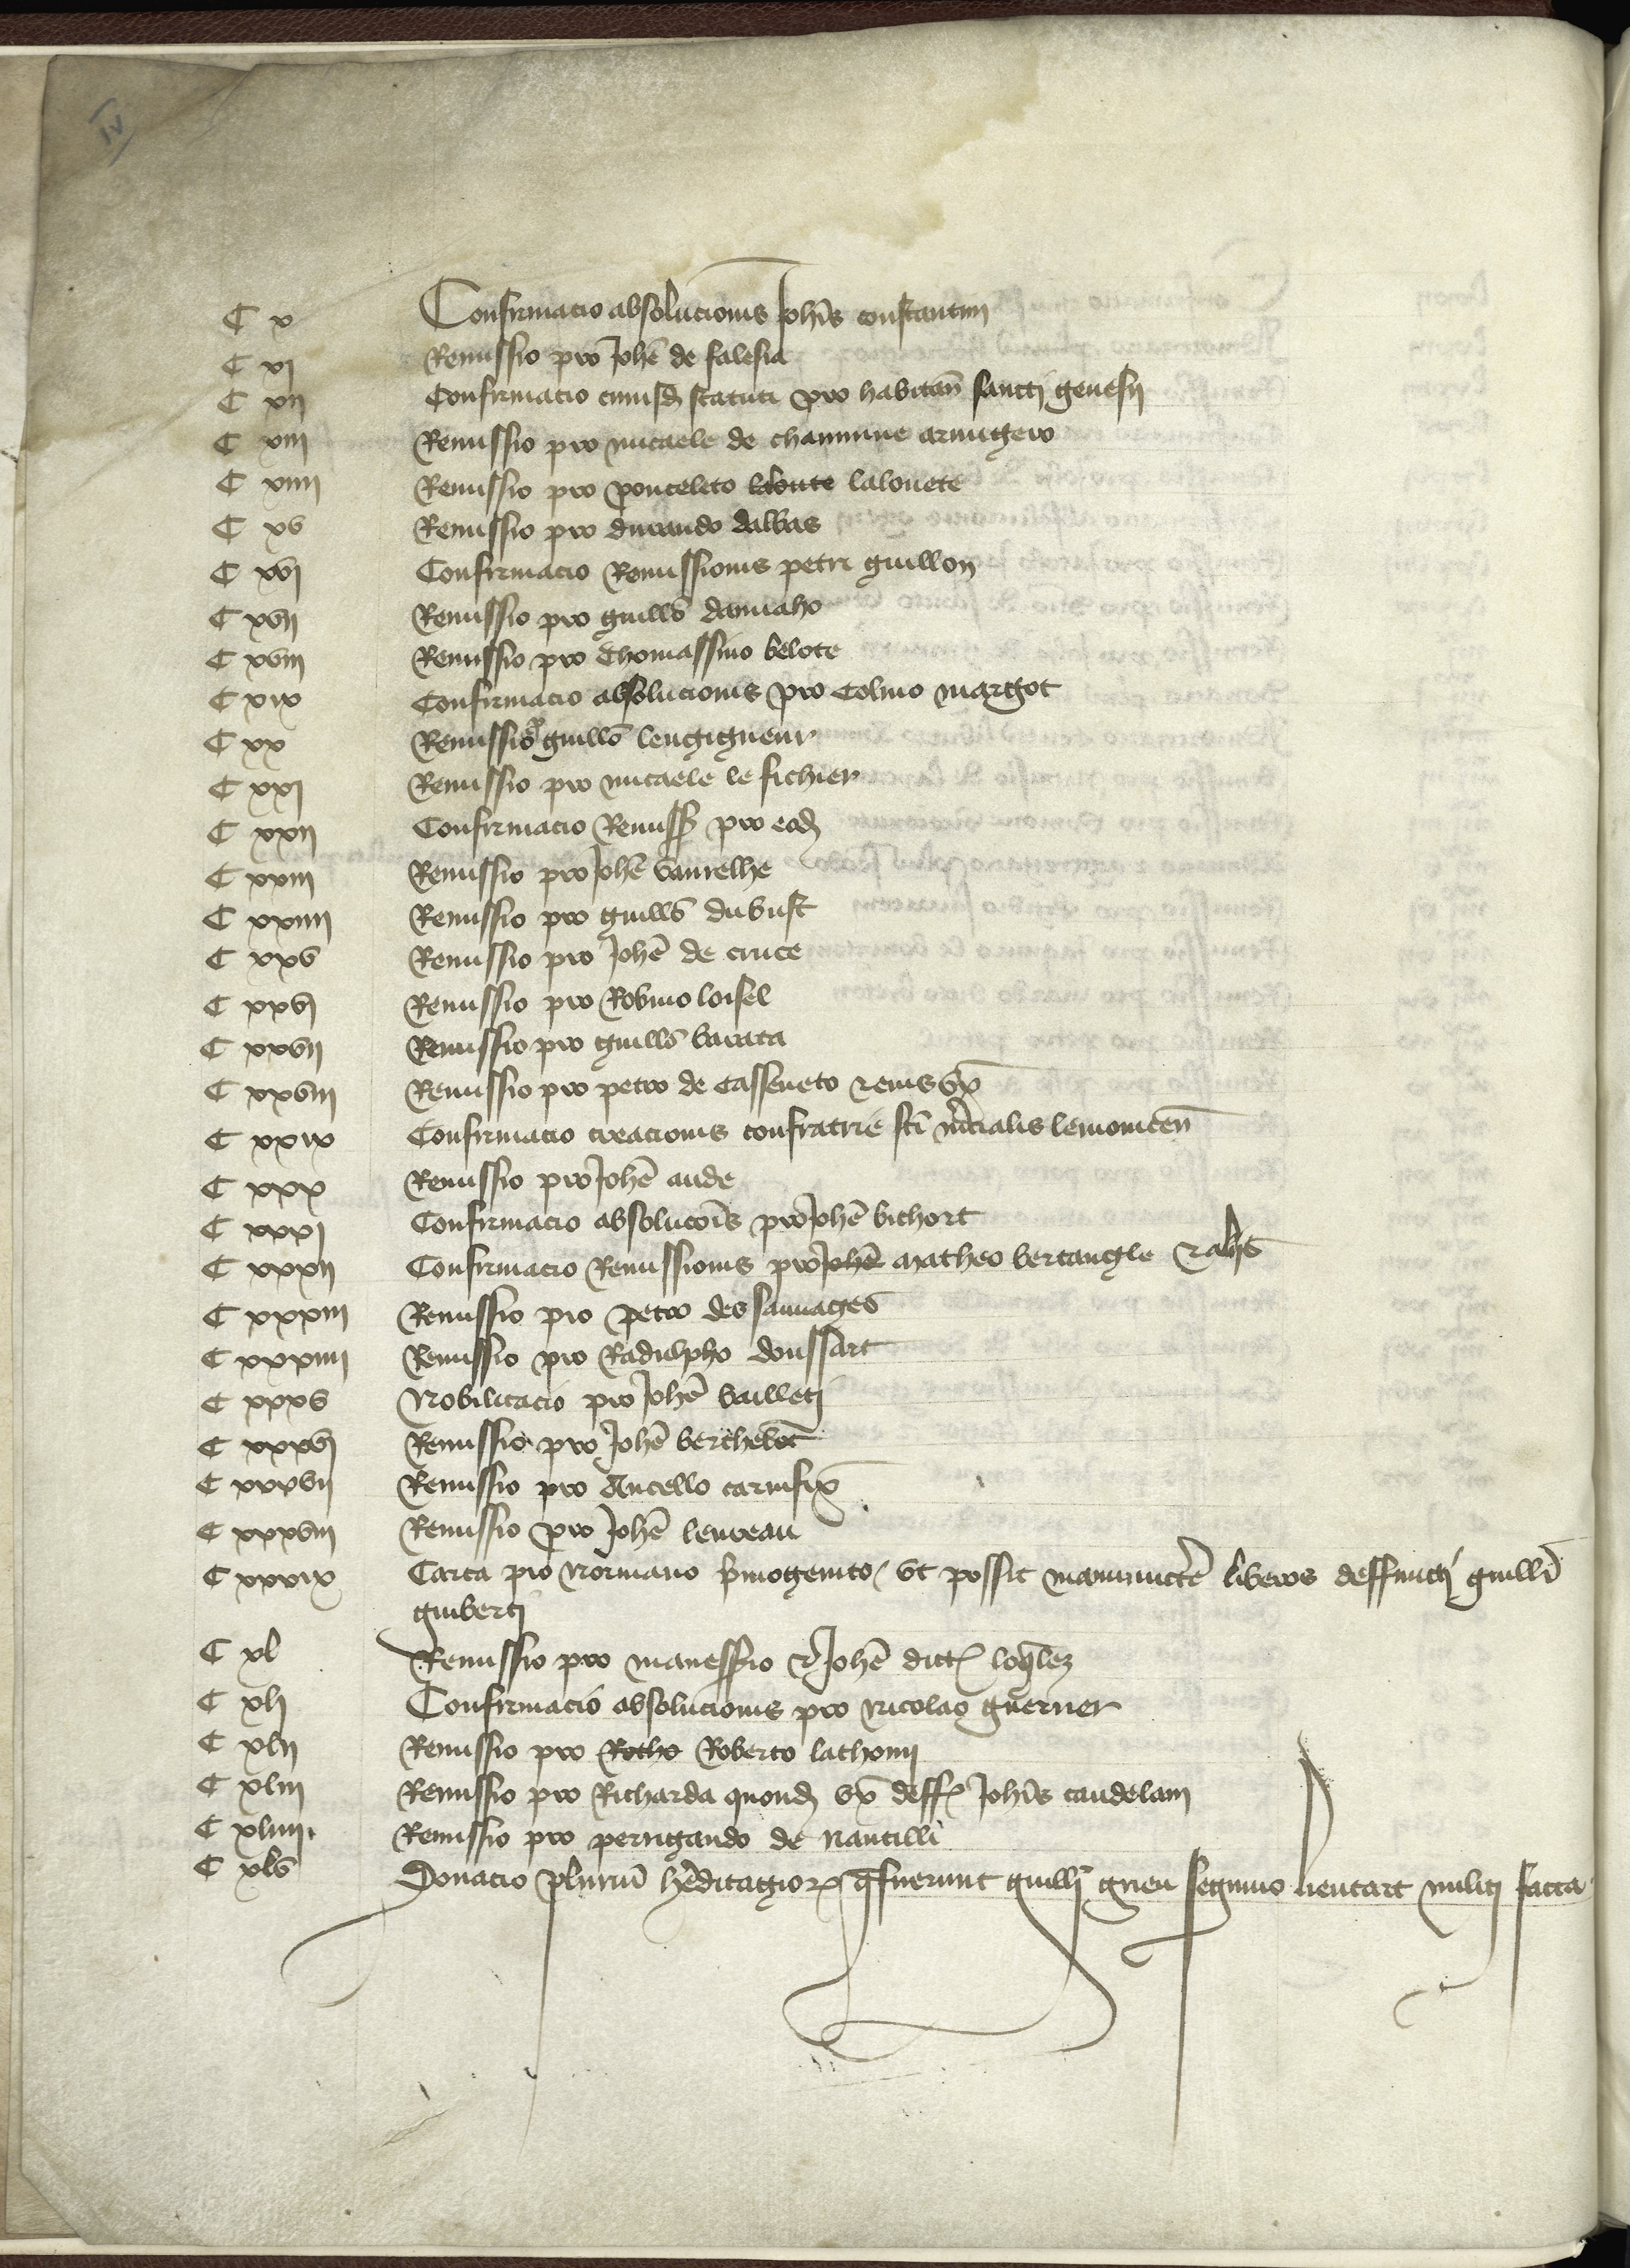 IV
C x Confirmacio absolucionis Joh̃is constantini
C xi Remissio pro Joh̃e de falesia
C xii Confirmacio cuiusd̃ statuti pro habitan̄ sancti genesii
C xiii Remissio pro micaele de chamune armigero
C xiiii Remissio pro ponceleto laloute lalouete
C xv Remissio pro durando dalbas
C xvi Confirmacio Remissionis petri guillon
C xvii Remissio pro guill̃o damiaho
C xviii Remissio pro Thomassino belote
C xix Confirmacio absolucionis pro Colino margot
C xx Remissio p̃ guill̃o lengigneur
C xxi Remissio pro micaele le fichier
C xxii Confirmacio Remiss̃ pro eod̃
C xxiii Remissio pro Joh̃e vaurelhe
C xxiiii Remissio pro guill̃o dubust
C xxv Remissio pro Joh̃e de cruce
C xxvi Remissio pro Robino loisel
C xxvii Remissio pro guill̃o barata
C xxviii Remissio pro petro de Casseneto & eius ux̃
C xxix Confirmacio creacionis confratrie sc̃i m̃cialis lemouicen̄
C xxx Remissio pro Joh̃e aude
C xxxi Confirmacio absoluc̃õis pro Joh̃e bichort
C xxxii Confirmacio Remissionis pro Joh̃e Matheo bertangle & al̃s
C xxxiii Remissio pro petro des sauuages
C xxxiiii Remissio pro Radulpho doussart
C xxxv Nobilitacio pro Joh̃e bailleti
C xxxvi Remissio pro Joh̃e berthelot
C xxxvii Remissio pro Ancello carnific̃
C xxxviii Remissio pro Joh̃e leureau
C xxxix Carta pro Normano p̃mogenito / ut possit manumictẽ liberos deffuncti guill̃i
guiberti
C xl Remissio pro manessio & Joh̃e dict̃
C xli Confirmacio absolucionis pro Nicolao guerner
C xlii Remissio pro Rotho Roberto lathomi
C xliii Remissio pro Richarda quond̃ ux̃ deff̃ Joh̃is candelarii
C xliiii Remissio pro perrigando de Nantilli
C xlv Donacio pluriũ h̃editagior̃ q̃ fuerunt guill̃i gueu seguino lientart militi facta